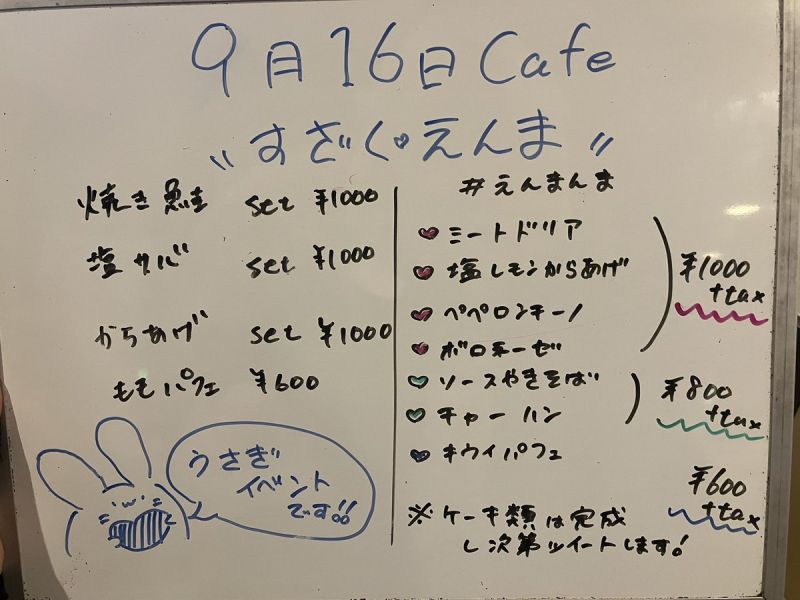 9月16日 Cafe
"すざく♡えんま"
焼き鮭 set ¥1000
塩サバ set ¥1000
からあげ set ¥1000
ももパフェ ¥600
うさぎ
イベント
です!!
#えんまんま
♡ミートドリア
♡塩レモンからあげ
♡ペペロンチーノ
♡ボロネーゼ
¥1000
+tax
♡ソースやきそば
♡チャーハン
¥800
+tax
♡キウイパフェ
¥600
+tax
※ケーキ類は完成
し次第ツイートします!